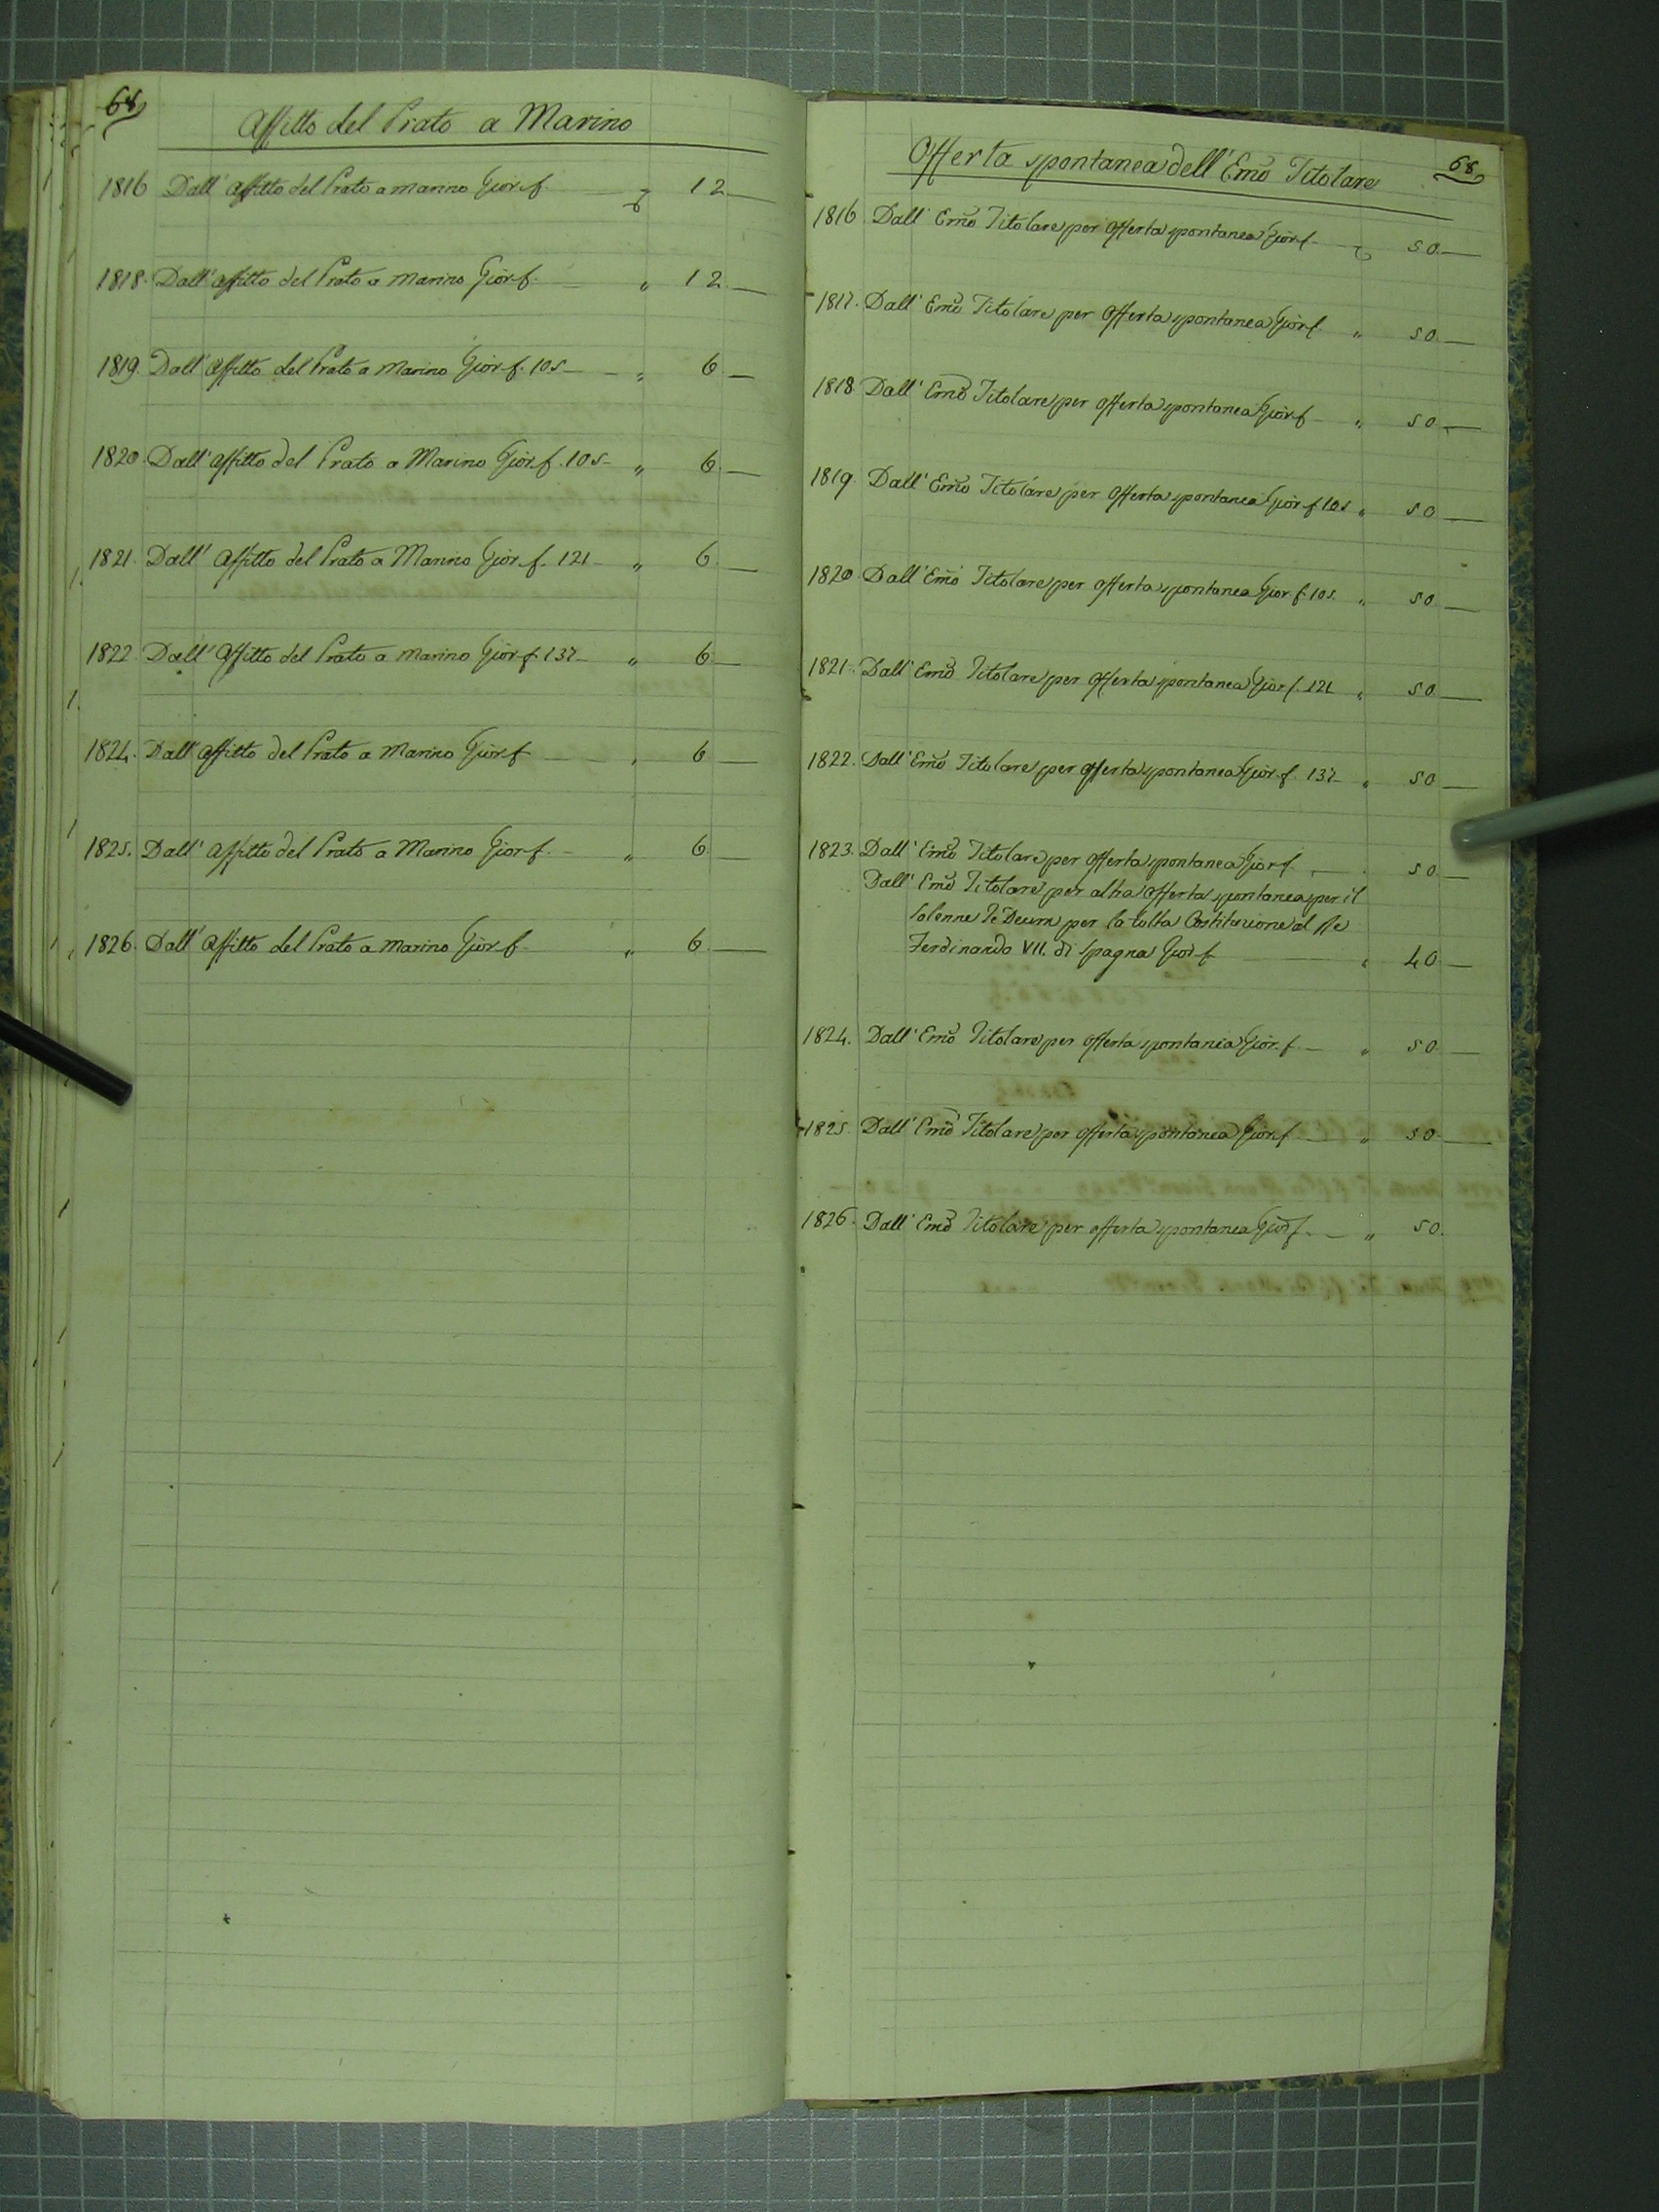 68
Affitto del Prato a Marino
1816 Dall' affitto del Prato a marino Gior. f. 12
1818. Dall' affitto del Prato a Marino Gior. f. " 12
1819. Dall' affitto del Prato a Marino Gior. f. 105 " 6
1820. Dall' affitto del Prato a Marino Gior. f. 105 " 6
1821. Dall' Affitto del Prato a Marino Gior. f. 121 " 6
1822 Dall' Affitto del Prato a Marino Gior. f. 137 " 6
1824. Dall' affitto del Prato a Marino Gior. f " 6
1825. Dall' Affitto del Prato a Marino Gior. f. " 6
1826. Dall' Affitto del Prato a marino Gior. f " 6
Offerta spontanea dell' Emo Titolare
68
1816 Dall' Emo Titolare per offerta spontanea Gior. f 50
1817. Dall' Emo Titolare per offerta spontanea Gior. f. " 50
1818 Dall' Emo Titolare per offerta spontanea Gior. f " 50
1819. Dall' Emo Titolare per offerta spontanea Gior. f 105 " 50
1820. Dall' Emo Titolare per offerta spontanea Gior. f. 105. " 50
1821. Dall' Emo Titolare per offerta spontanea Gior. f. 121 " 50
1822. Dall' Emo Titolare per offerta spontanea Gior. f. 137 " 50
1823. Dall' Emo Titolare per offerta spontanea Gior. f. 50
Dall' Emo Titolare per altra offerta spontanea per il
solenne Te Deum per la tolta Costituzione al Re
Ferdinando VII. di Spagna Gior. f " 40
1824. Dall' Emo Titolare per offerta spontanea Gior. f. " 50
1825. Dall' Emo Titolare per offerta spontanea Gior. f. " 50
1826. Dall' Emo Titolare per offerta spontanea Gior. f. " 50.